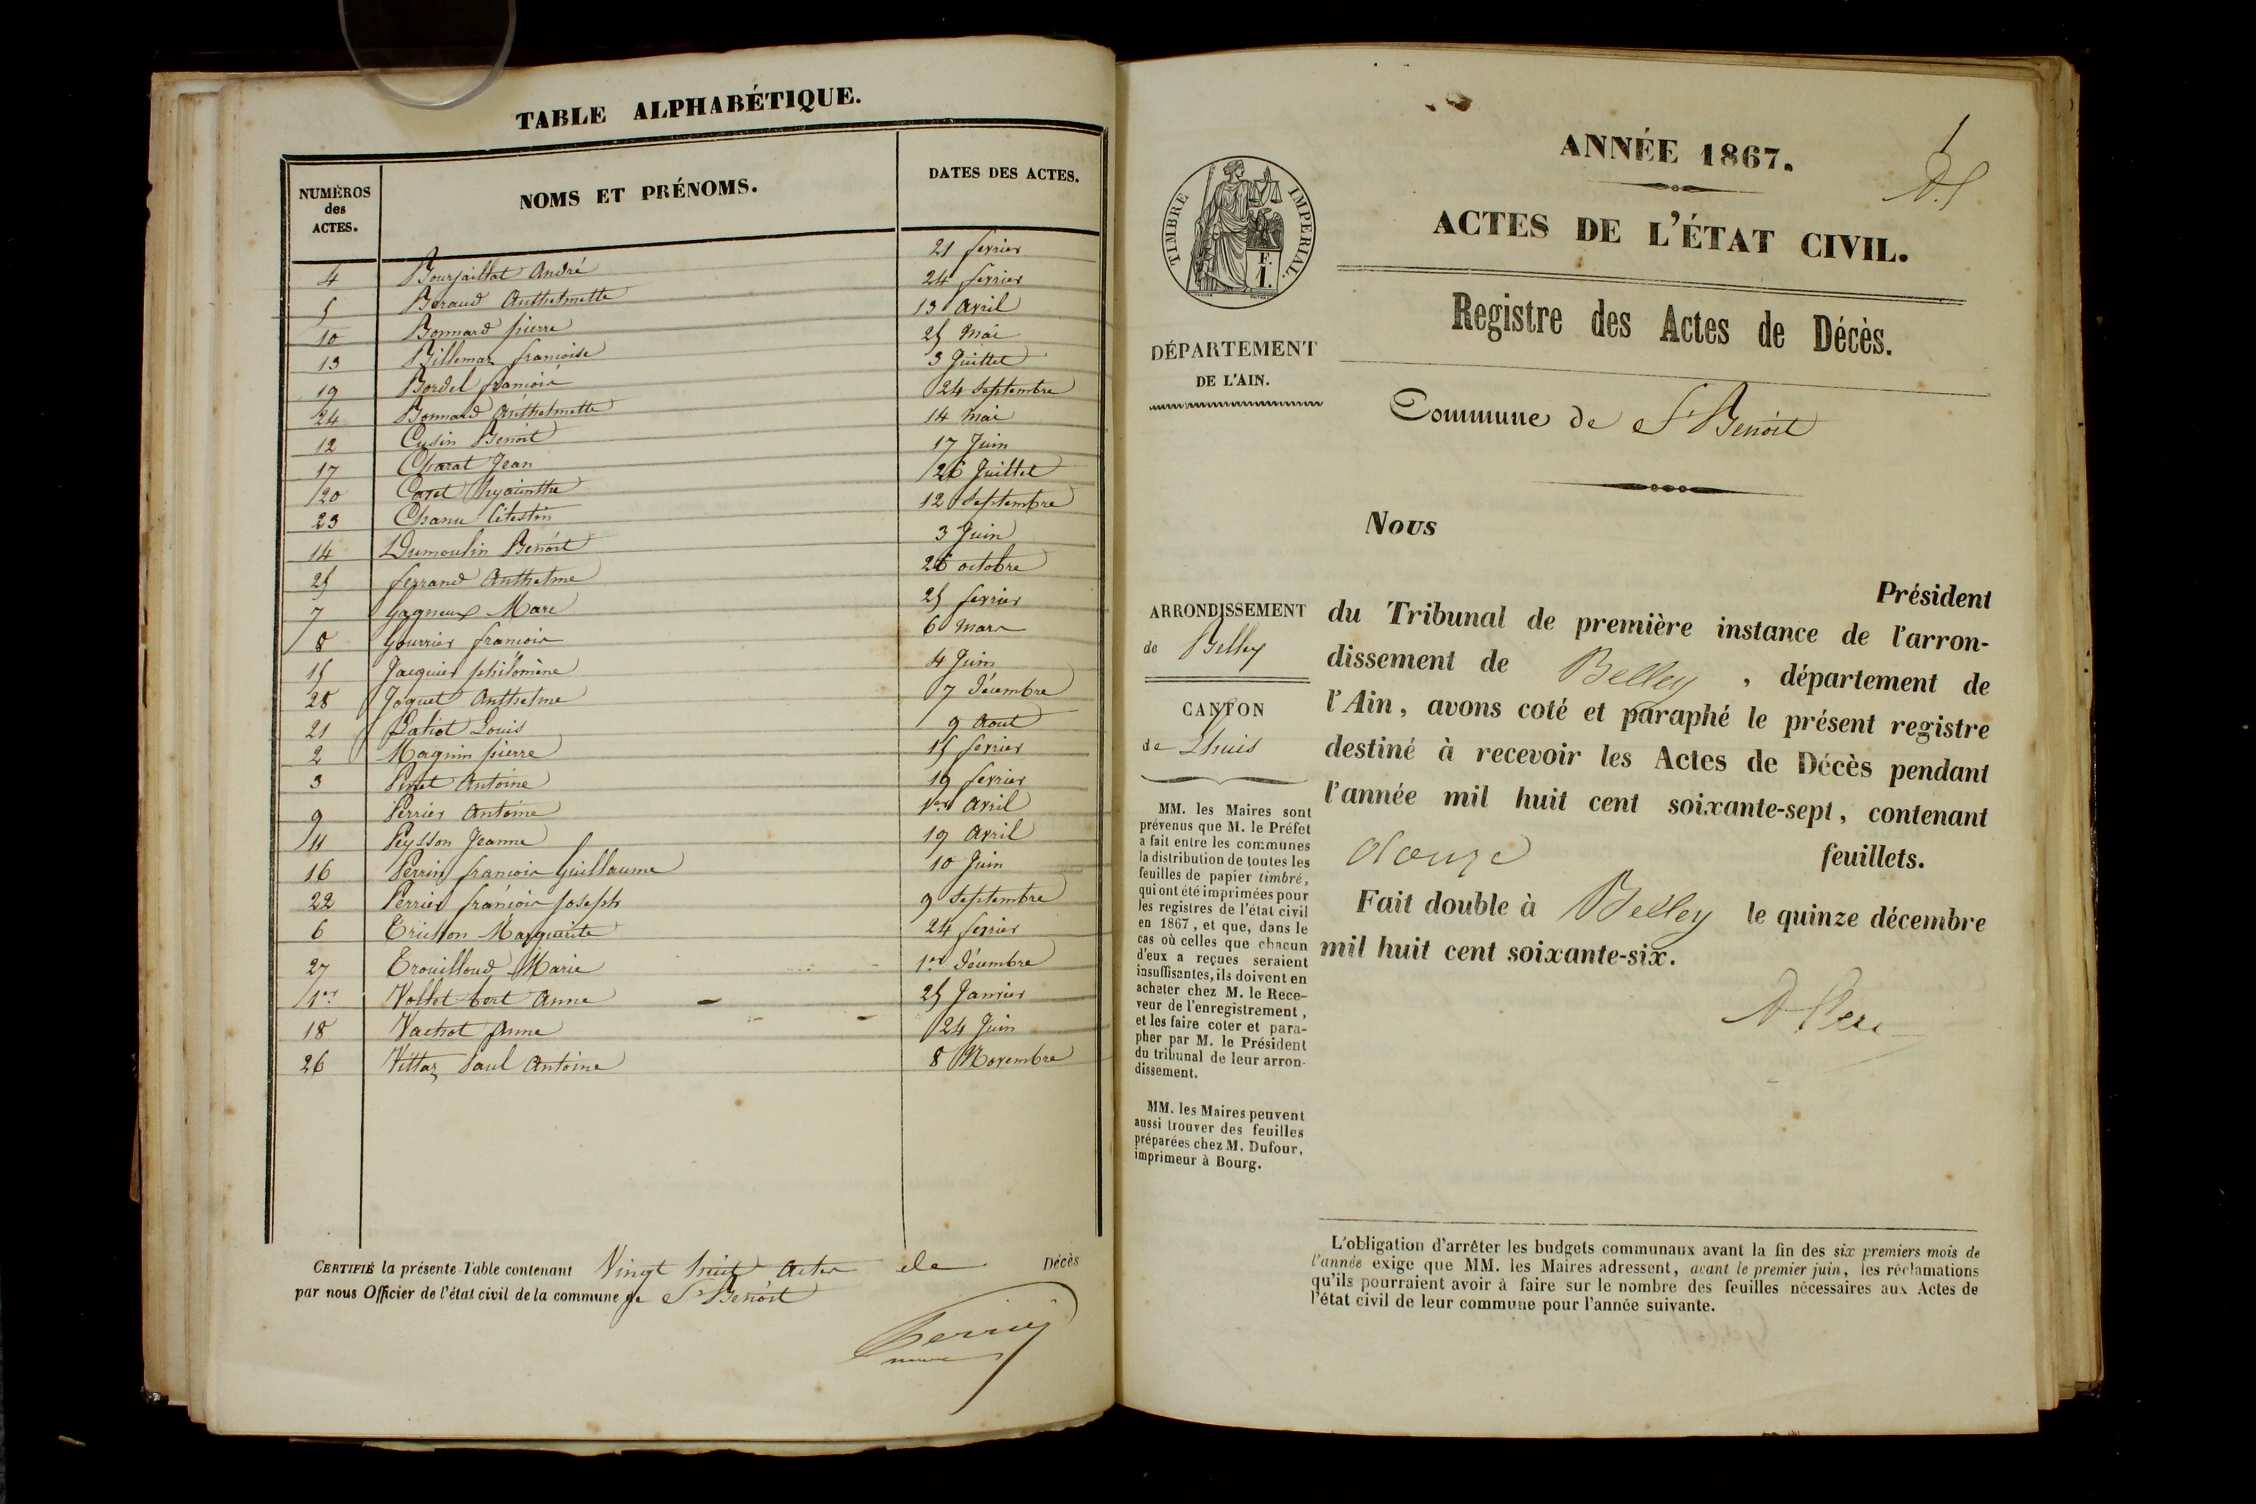 TABLE ALPHABÉTIQUE.
NUMÉROS
des
ACTES.
NOMS ET PRÉNOMS.
DATES DES ACTES.
4 Bourjaillat André 21 fevrier
5 Beraud Anthelmette 24 fevrier
10 Bonnard pierre 13 Avril
13 Billemaz françoise 25 Mai
19 Bordel françois 3 Juillet
24 Bonnard Anthelmette 24 Septembre
12 Cusin Benoit 14 Mai
17 Charat Jean 17 Juin
20 Caret hyacinthe 26 Juillet
23 Chanu Célestin 12 Septembre
14 Dumoulin Benoit 3 Juin
25 ferrand Anthelme 26 octobre
7 Gagneux Marc 25 fevrier
8 Gourrier françois 6 Mars
15 Jacquier philomène 4 Juin
28 Joguet Anthelme 7 Décembre
21 Louis 9 Aout
2 Magnin pierre 15 fevrier
3 Antoine 19 fevrier
9 Perrier Antoine 1er Avril
11 Peysson Jeanne 19 Avril
16 Perrin françois Guillaume 10 Juin
22 Perrier françois Joseph 9 Septembre
6 Trichon Marguerite 24 fevrier
27 Trouilloud Marie 1er Décembre
1er Vollet bert Anne 25 Janvier
18 Vachot Anne 24 Juin
26 Vittaz Paul Antoine 8 Novembre
CERTIFIÉ la présente Table contenant Vingt huit Actes de Décès
par nous Officier de l'état civil de la commune de St Benoit
Perrier
ANNÉE 1867.
ACTES DE L'ÉTAT CIVIL.
Registre des Actes de Décès.
Commune de St Benoit
TIMBRE IMPERIAL.
F.
1.
DÉPARTEMENT
DE L'AIN.
ARRONDISSEMENT
de Belley
CANTON
de Lhuis
MM. les Maires sont
prévenus que M. le Préfet
a fait entre les communes
la distribution de toutes les
feuilles de papier timbré,
qui ont été imprimées pour
les registres de l'état civil
en 1867, et que, dans le
cas où celles que chacun
d'eux a reçues seraient
insuffisantes, ils doivent en
acheter chez M. le Rece-
veur de l'enregistrement,
et les faire coter et para-
pher par M. le Président
du tribunal de leur arron-
dissement.
MM. les Maires peuvent
aussi trouver des feuilles
préparées chez M. Dufour,
imprimeur à Bourg.
Nous
Président
du Tribunal de première instance de l'arron-
dissement de Belley, département de
l'Ain, avons coté et paraphé le présent registre
destiné à recevoir les Actes de Décès pendant
l'année mil huit cent soixante-sept, contenant
douze feuillets.
Fait double à Belley le quinze décembre
mil huit cent soixante-six.
L'obligation d'arrêter les budgets communaux avant la fin des six premiers mois de
l'année exige que MM. les Maires adressent, avant le premier juin, les réclamations
qu'ils pourraient avoir à faire sur le nombre des feuilles nécessaires aux Actes de
l'état civil de leur commune pour l'année suivante.